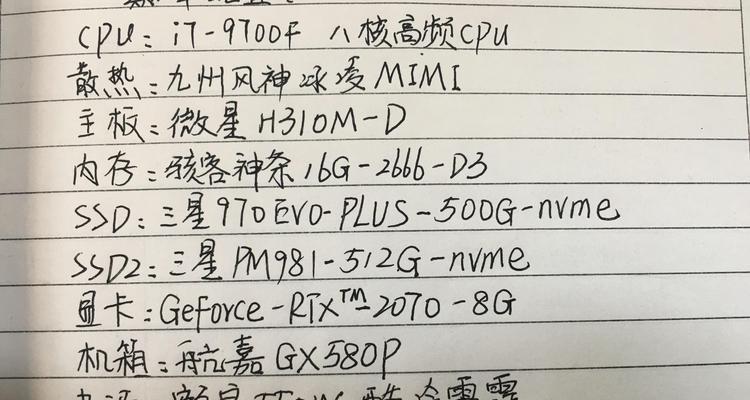 CPU：i7-9700F 八核高频CPU
散热：九州风神冰凌MIMI
主板：微星H310M-D
内存：骇客神条16G-2666-D3
SSD：三星970EVO-PLUS-500G-nvme
SSD2：三星PM981-512G-nvme
显卡：Geforce-RTX™-2070-8G
机箱：航嘉GX580P